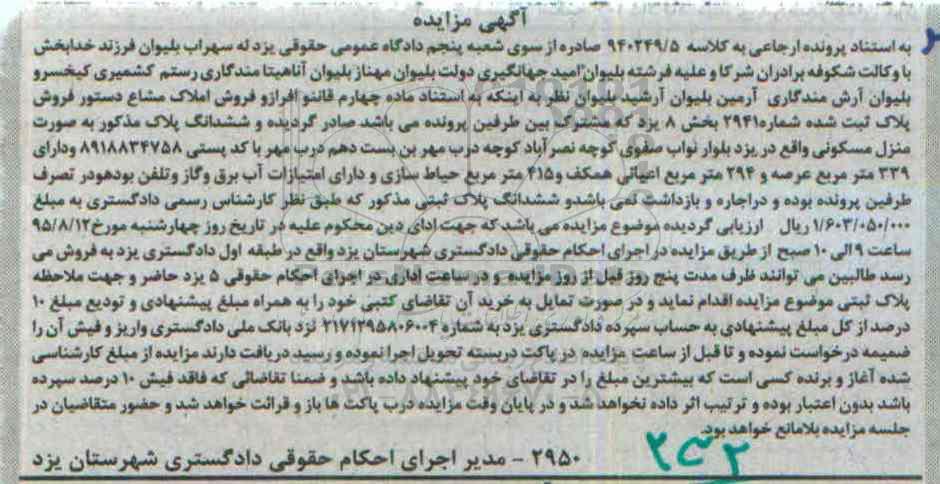 آگهی مزایده
به استناد پرونده ارجاعی به کلاسه ۹۴۰۲۴۹/۵ صادره از سوی شعبه پنجم دادگاه عمومی حقوقی یزد له سهراب بلیوان فرزند خدابخش
با وکالت شکوفه برادران شرکا و علیه فرشته بلیوان امید جهانگیری دولت بلیوان مهناز بلیوان آناهیتا مندگاری رستم کشمیری کیخسرو
بلیوان آرش مندگاری آرمین بلیوان آرشید بلیوان نظر به اینکه به استناد ماده چهارم قاننو افرازو فروش املاک مشاع دستور فروش
پلاک ثبت شده شماره ۲۹۴۱ بخش ۸ یزد که مشترک بین طرفین پرونده می باشد صادر گردیده و ششدانگ پلاک مذکور به صورت
منزل مسکونی واقع در یزد بلوار نواب صفوی کوچه نصرآباد کوچه درب مهر بن بست دهم درب مهر با کد پستی ۸۹۱۸۸۳۴۷۵۸ ودارای
۳۳۹ متر مربع عرصه و ۲۹۴ متر مربع اعیانی همکف و ۴۱۵ متر مربع حیاط سازی و دارای امتیازات آب برق وگاز وتلفن بودهودر تصرف
طرفین پرونده بوده و دراجاره و بازداشت نمی باشدو ششدانگ پلاک ثبتی مذکور که طبق نظر کارشناس رسمی دادگستری به مبلغ
۱/۶۰۳/۰۵۰/۰۰۰ ریال ارزیابی گردیده موضوع مزایده می باشد که جهت ادای دین محکوم علیه در تاریخ روز چهارشنبه مورخ ۹۵/۸/۱۲
ساعت ۹ الی ۱۰ صبح از طریق مزایده در اجرای احکام حقوقی دادگستری شهرستان یزد واقع در طبقه اول دادگستری یزد به فروش می
رسد طالبین می توانند ظرف مدت پنج روز قبل از روز مزایده و در ساعت اداری در اجرای احکام حقوقی ۵ یزد حاضر و جهت ملاحظه
پلاک ثبتی موضوع مزایده اقدام نماید و در صورت تمایل به خرید آن تقاضای کتبی خود را به همراه مبلغ پیشنهادی و تودیع مبلغ ۱۰
درصد از کل مبلغ پیشنهادی به حساب سپرده دادگستری یزد به شماره ۲۱۷۱۲۹۵۸۰۶۰۰۴ نزد بانک ملی دادگستری واریز و فیش آن را
ضمیمه درخواست نموده و تا قبل از ساعت مزایده در پاکت دربسته تحویل اجرا نموده و رسید دریافت دارند مزایده از مبلغ کارشناسی
شده آغاز و برنده کسی است که بیشترین مبلغ را در تقاضای خود پیشنهاد داده باشد و ضمنا تقاضائی که فاقد فیش ۱۰ درصد سپرده
باشد بدون اعتبار بوده و ترتیب اثر داده نخواهد شد و در پایان وقت مزایده درب پاکت ها باز و قرائت خواهد شد و حضور متقاضیان در
جلسه مزایده بلامانع خواهد بود.
۲۹۵۰ - مدیر اجرای احکام حقوقی دادگستری شهرستان یزد